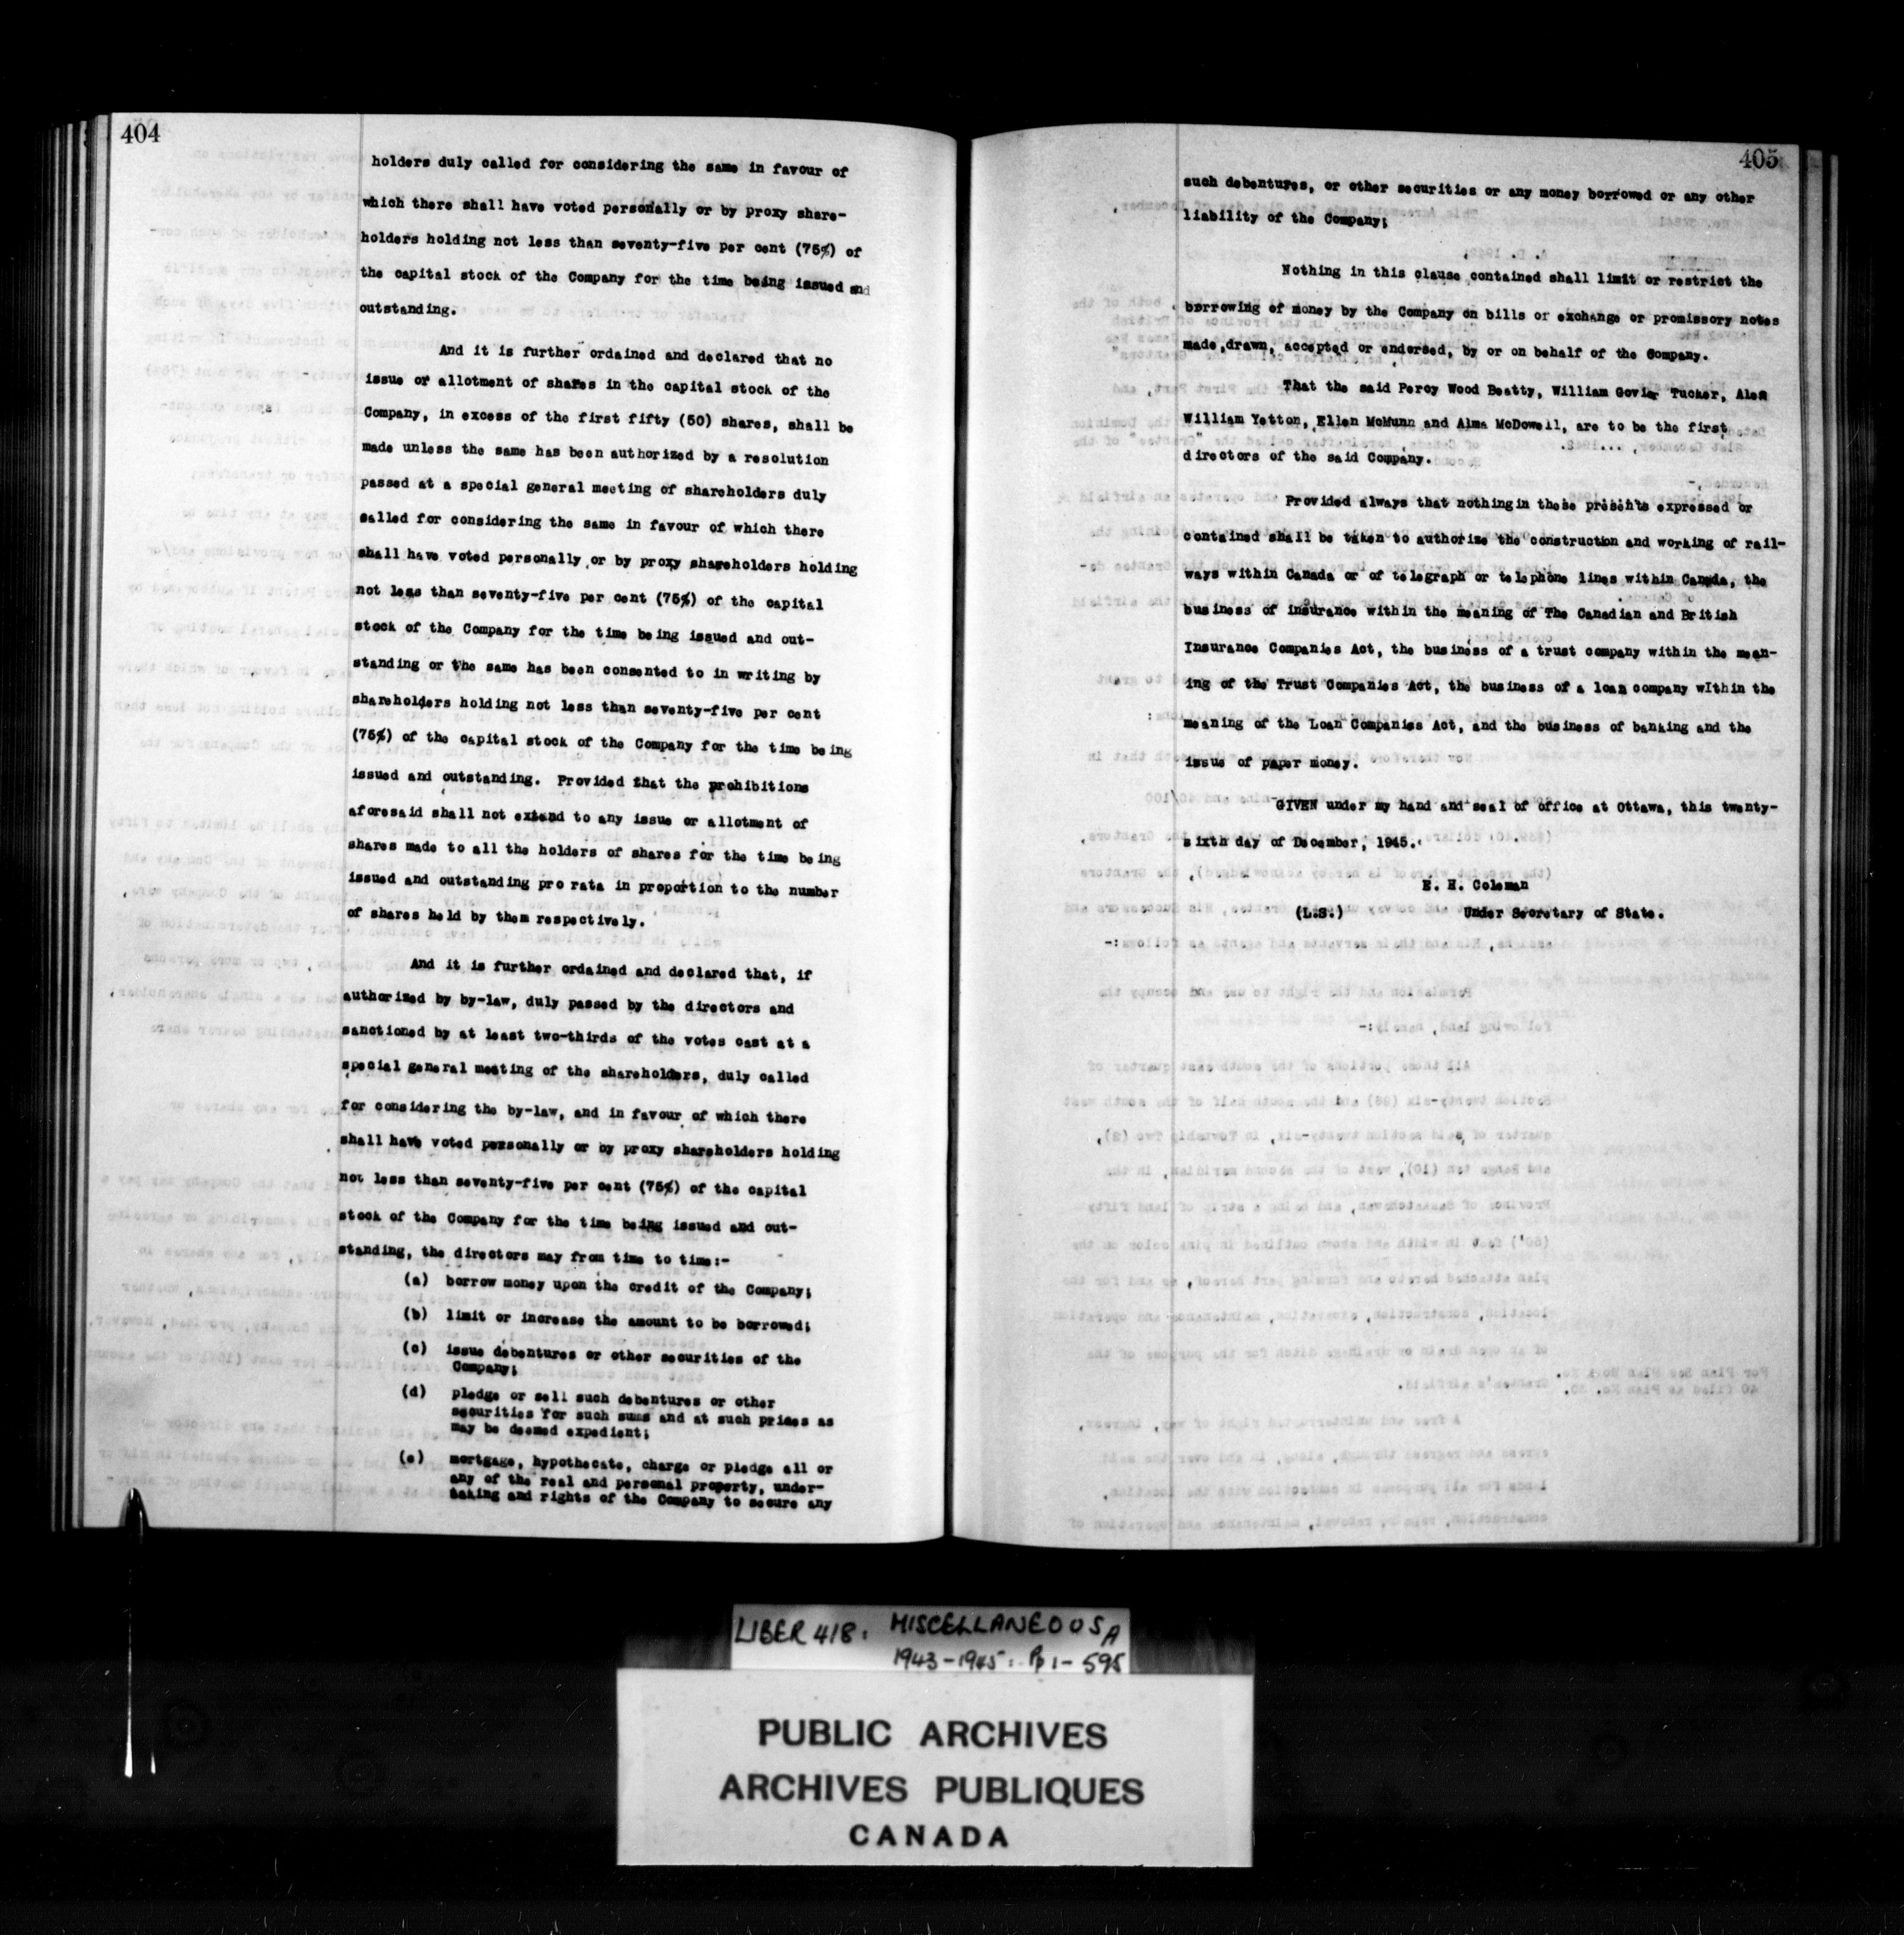 404
holders duly called for considering the same in favour of
which there shall have voted personally or by proxy share-
holders holding not less than seventy-five per cent (75%) of
the capital stock of the Company for the time being issued and
outstanding.
And it is further ordained and declared that no
issue or allotment of shares in the capital stock of the
Company, in excess of the first fifty (50) shares, shall be
made unless the same has been authorized by a resolution
passed at a special general meeting of shareholders duly
called for considering the same in favour of which there
shall have voted personally or by proxy shareholders holding
not less than seventy-five per cent (75%) of the capital
stock of the Company for the time being issued and out-
standing or the same has been consented to in writing by
shareholders holding not less than seventy-five per cent
(75%) of the capital stock of the Company for the time being
issued and outstanding. Provided that the prohibitions
aforesaid shall not extend to any issue or allotment of
shares made to all the holders of shares for the time being
issued and outstanding pro rata in proportion to the number
of shares held by them respectively.
And it is further ordained and declared that, if
authorized by by-law, duly passed by the directors and
sanctioned by at least two-thirds of the votes cast at a
special general meeting of the shareholders, duly called
for considering the by-law, and in favour of which there
shall have voted personally or by proxy shareholders holding
not less than seventy-five per cent (75%) of the capital
stock of the Company for the time being issued and out-
standing, the directors may from time to time:-
(a) borrow money upon the credit of the Company;
(b) limit or increase the amount to be borrowed;
(c) issue debentures or other securities of the
Company;
(d) pledge or sell such debentures or other
securities for such sums and at such prices as
may be deemed expedient;
(e) mortgage, hypothecate, charge or pledge all or
any of the real and personal property, under-
taking and rights of the Company to secure any
405
such debentures, or other securities or any money borrowed or any other
liability of the Company;
Nothing in this clause contained shall limit or restrict the
borrowing of money by the Company on bills or exchange or promissory notes
made,drawn, accepted or endorsed, by or on behalf of the Company.
That the said Percy Wood Beatty, William Govier Tucker, Alen
William Yetton, Ellen McMunn and Alma McDowell, are to be the first
directors of the said Company.
Provided always that nothing in these presents expressed or
contained shall be taken to authorize the construction and working of rail-
ways within Canada or of telegraph or telephone lines within Canada, the
business of insurance within the meaning of The Canadian and British
Insurance Companies Act, the business of a trust company within the mean-
ing of the Trust Companies Act, the business of a loan company within the
meaning of the Loan Companies Act, and the business of banking and the
issue of paper money.
GIVEN under my hand and seal of office at Ottawa, this twenty-
sixth day of December, 1945.
E. H. Coleman
(L.S.) Under Secretary of State.
LIBER 418: MISCELLANEOUS A
1943-1945: Pp 1-595
PUBLIC ARCHIVES
ARCHIVES PUBLIQUES
CANADA